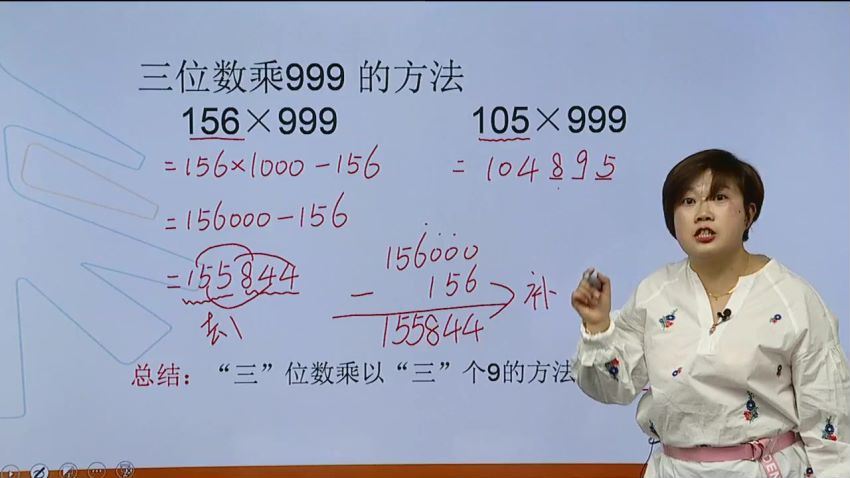 三位数乘999 的方法
156×999
105×999
=156×1000-156
=104895
=156000-156
156000
=155844
- 156
补
去1
155844
总结：“三”位数乘以“三”个9的方法